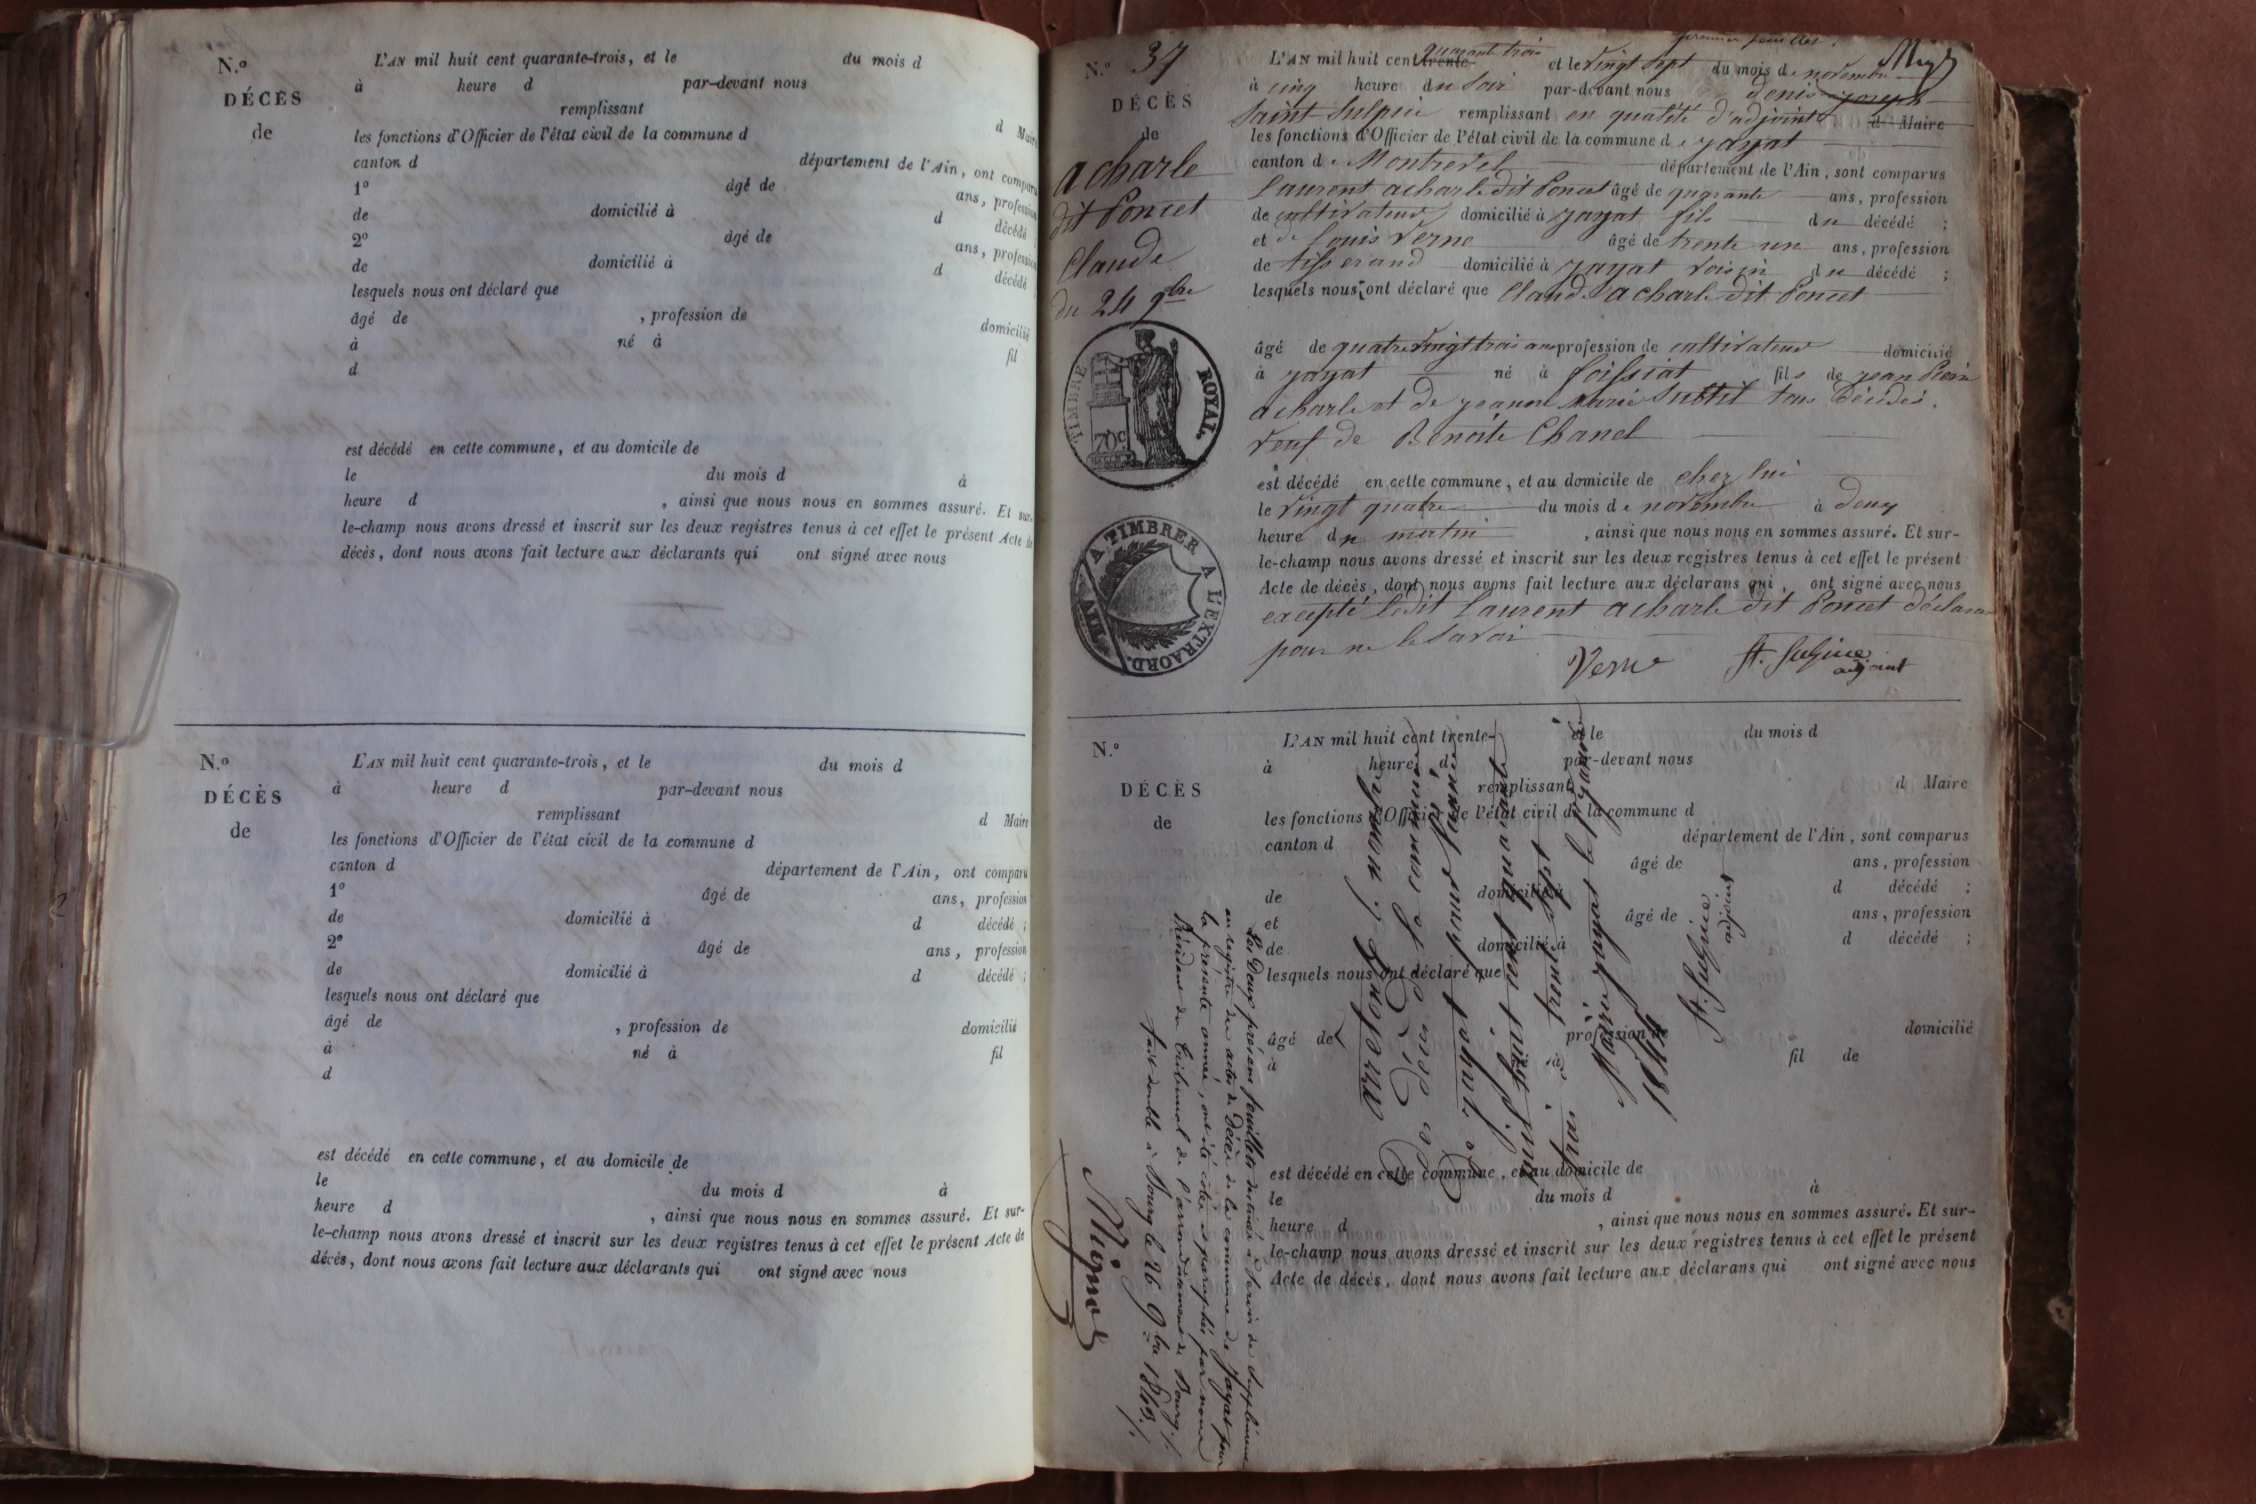 N.º
DÉCÈS
de
L'AN mil huit cent quarante-trois, et le du mois d
à heure d par-devant nous
remplissant d Maire
les fonctions d'Officier de l'état civil de la commune d
canton d département de l'Ain, ont comparu
1º âgé de ans, profession
de domicilié à d décédé ;
2º âgé de ans, profession
de domicilié à d décédé ;
lesquels nous ont déclaré que
âgé de , profession de domicilié
à né à fil
d
est décédé en cette commune, et au domicile de
le du mois d à
heure d , ainsi que nous nous en sommes assuré. Et sur-
le-champ nous avons dressé et inscrit sur les deux registres tenus à cet effet le présent Acte de
décès, dont nous avons fait lecture aux déclarants qui ont signé avec nous
N.º
DÉCÈS
de
L'AN mil huit cent quarante-trois, et le du mois d
à heure d par-devant nous
remplissant d Maire
les fonctions d'Officier de l'état civil de la commune d
canton d département de l'Ain, ont comparu
1º âgé de ans, profession
de domicilié à d décédé ;
2º âgé de ans, profession
de domicilié à d décédé ;
lesquels nous ont déclaré que
âgé de , profession de domicilié
à né à fil
d
est décédé en cette commune, et au domicile de
le du mois d à
heure d , ainsi que nous nous en sommes assuré. Et sur-
le-champ nous avons dressé et inscrit sur les deux registres tenus à cet effet le présent Acte de
décès, dont nous avons fait lecture aux déclarants qui ont signé avec nous
premier feuillet.
N.º 37
DÉCÈS
de
acharle
dit Poncet
Claude
du 24 9bre
TIMBRE ROYAL.
70c
A TIMBRER A L'EXTRAORD.
AIN
L'AN mil huit cent trente quarante trois et le vingt sept du mois de novembre
à cinq heure du soir par-devant nous denis joseph
Saint Sulpice remplissant en qualité d'adjoint d Maire
les fonctions d'Officier de l'état civil de la commune de jayat
canton de Montrevel département de l'Ain, sont comparus
Laurent acharle dit Poncet âgé de quarante ans, profession
de cultivateur domicilié à jayat fils du décédé ;
et de Louis Verne âgé de trente un ans, profession
de tisserand domicilié à jayat voisin du décédé ;
lesquels nous ont déclaré que Claude acharle dit Poncet
âgé de quatre vingt trois ans profession de cultivateur domicilié
à jayat né à foissiat fils de jean Pierre
acharle et de jeanne marie Subtil tous décédés.
veuf de Benoite Chanel
est décédé en cette commune, et au domicile de chez lui
le vingt quatre du mois de novembre à deux
heure du matin , ainsi que nous nous en sommes assuré. Et sur-
le-champ nous avons dressé et inscrit sur les deux registres tenus à cet effet le présent
Acte de décès, dont nous avons fait lecture aux déclarans qui ont signé avec nous
excepté ledit Laurent acharle dit Poncet déclarant
pour ne le savoir
Verne St. Sulpice
adjoint
N.º
DÉCÈS
de
L'AN mil huit cent trente- et le du mois d
à heure d par-devant nous
remplissant d Maire
les fonctions d'Officier de l'état civil de la commune d
canton d département de l'Ain, sont comparus
âgé de ans, profession
de domicilié à d décédé ;
et âgé de ans, profession
de domicilié à d décédé ;
lesquels nous ont déclaré que
âgé de profession de domicilié
à né à fil de
est décédé en cette commune, et au domicile de
le du mois d à
heure d , ainsi que nous nous en sommes assuré. Et sur-
le-champ nous avons dressé et inscrit sur les deux registres tenus à cet effet le présent
Acte de décès, dont nous avons fait lecture aux déclarans qui ont signé avec nous
Les Deux présens feuillets destinés à Servir de Supplément
au registre des actes de Décès de la commune de Jayat pour
la présente année, ont été cotés et paraphés par nous
Président du Tribunal de l'arrondissement de Bourg.
fait double à Bourg le 26 9bre 1843.
1844
St. Sulpice
adjoint